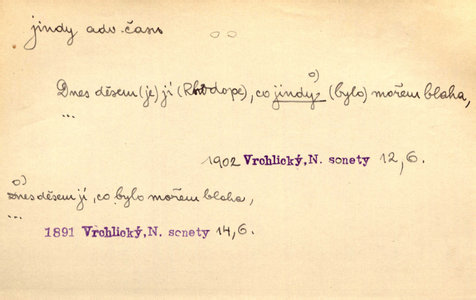 jindy adv. čas
Dnes děsem (je) jí (Rhodope), co jindy o) (bylo) mořem blaha,
...
1902 Vrchlický, N. sonety 12,6.
o)
Dnes děsem jí, co bylo mořem blaha,
...
1891 Vrchlický, N. sonety 14,6.